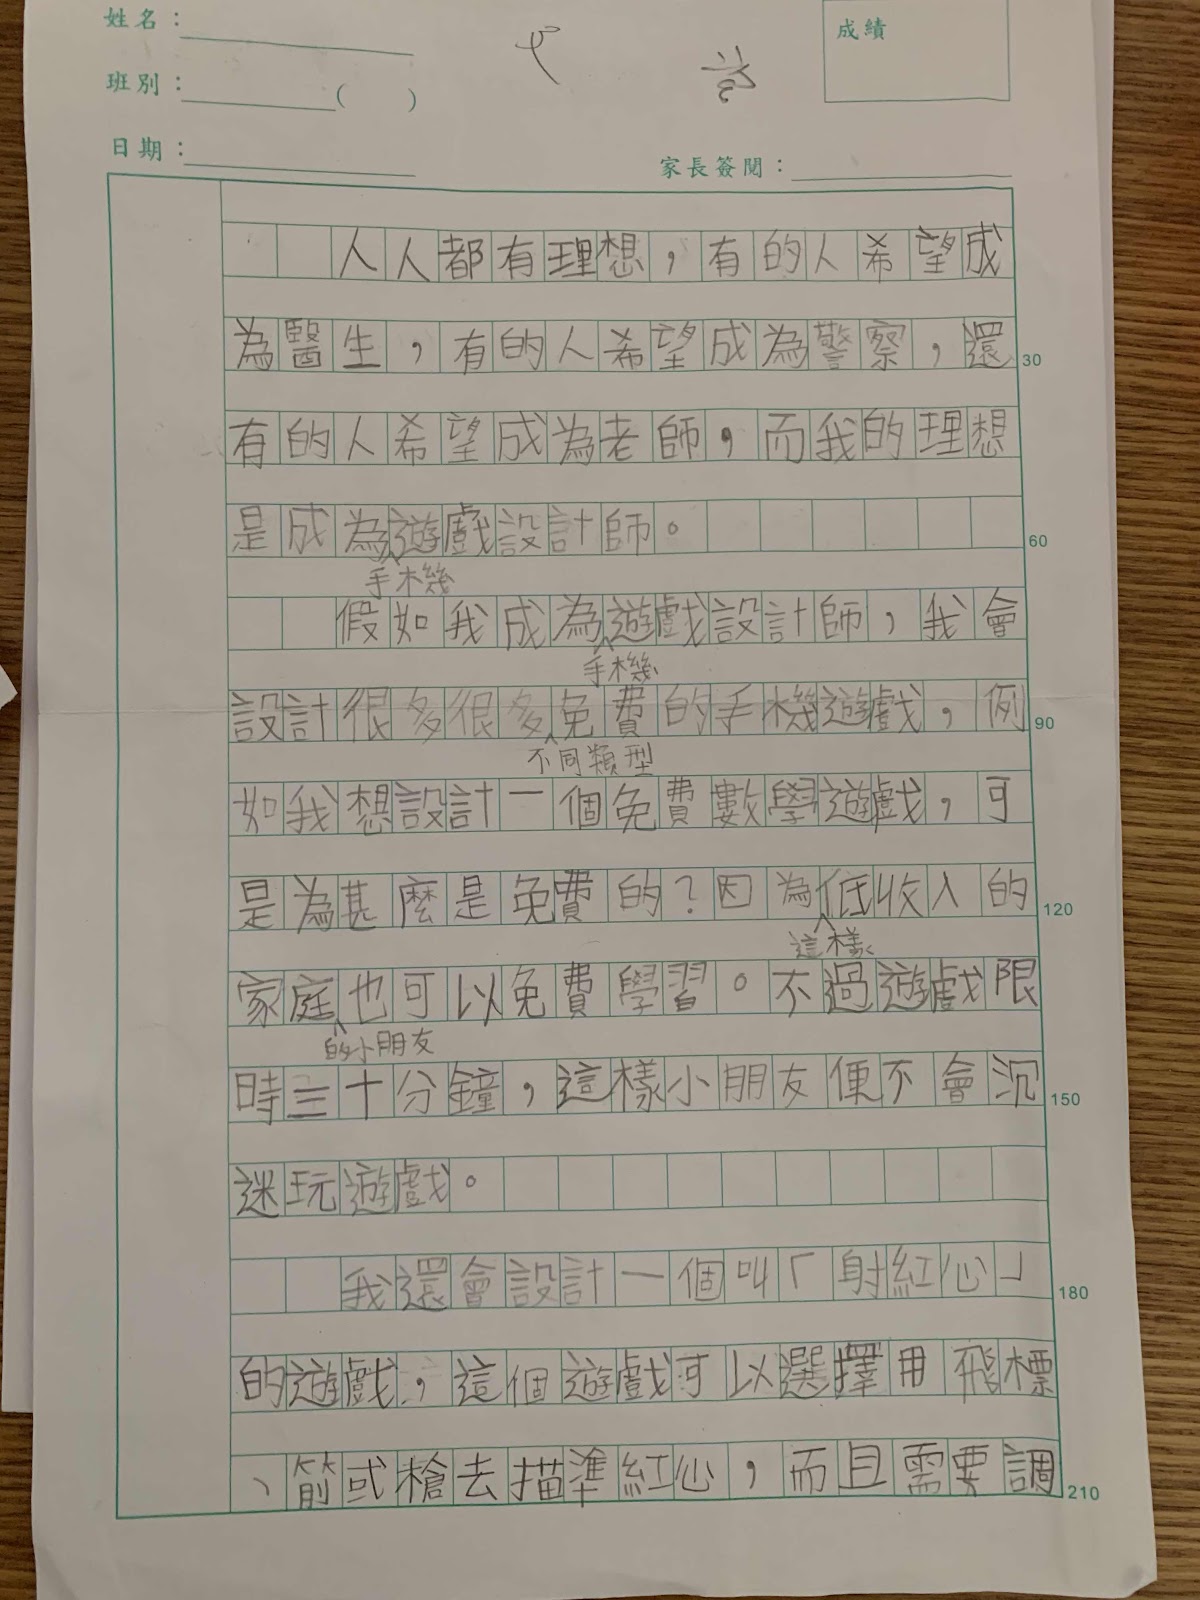 姓名：
成績
班別：（　）
日期：
家長簽閱：
人人都有理想，有的人希望成
為醫生，有的人希望成為警察，還
30
有的人希望成為老師，而我的理想
是成為遊戲設計師。
60
手機
假如我成為遊戲設計師，我會
手機
設計很多很多免費的手機遊戲，例
90
不同類型
如我想設計一個免費數學遊戲，可
是為甚麼是免費的？因為低收入的
120
這樣
家庭也可以免費學習。不過遊戲限
的小朋友
時三十分鐘，這樣小朋友便不會沉
150
迷玩遊戲。
我還會設計一個叫「射紅心」
180
的遊戲，這個遊戲可以選擇用飛標
、箭或槍去描準紅心，而且需要調
210